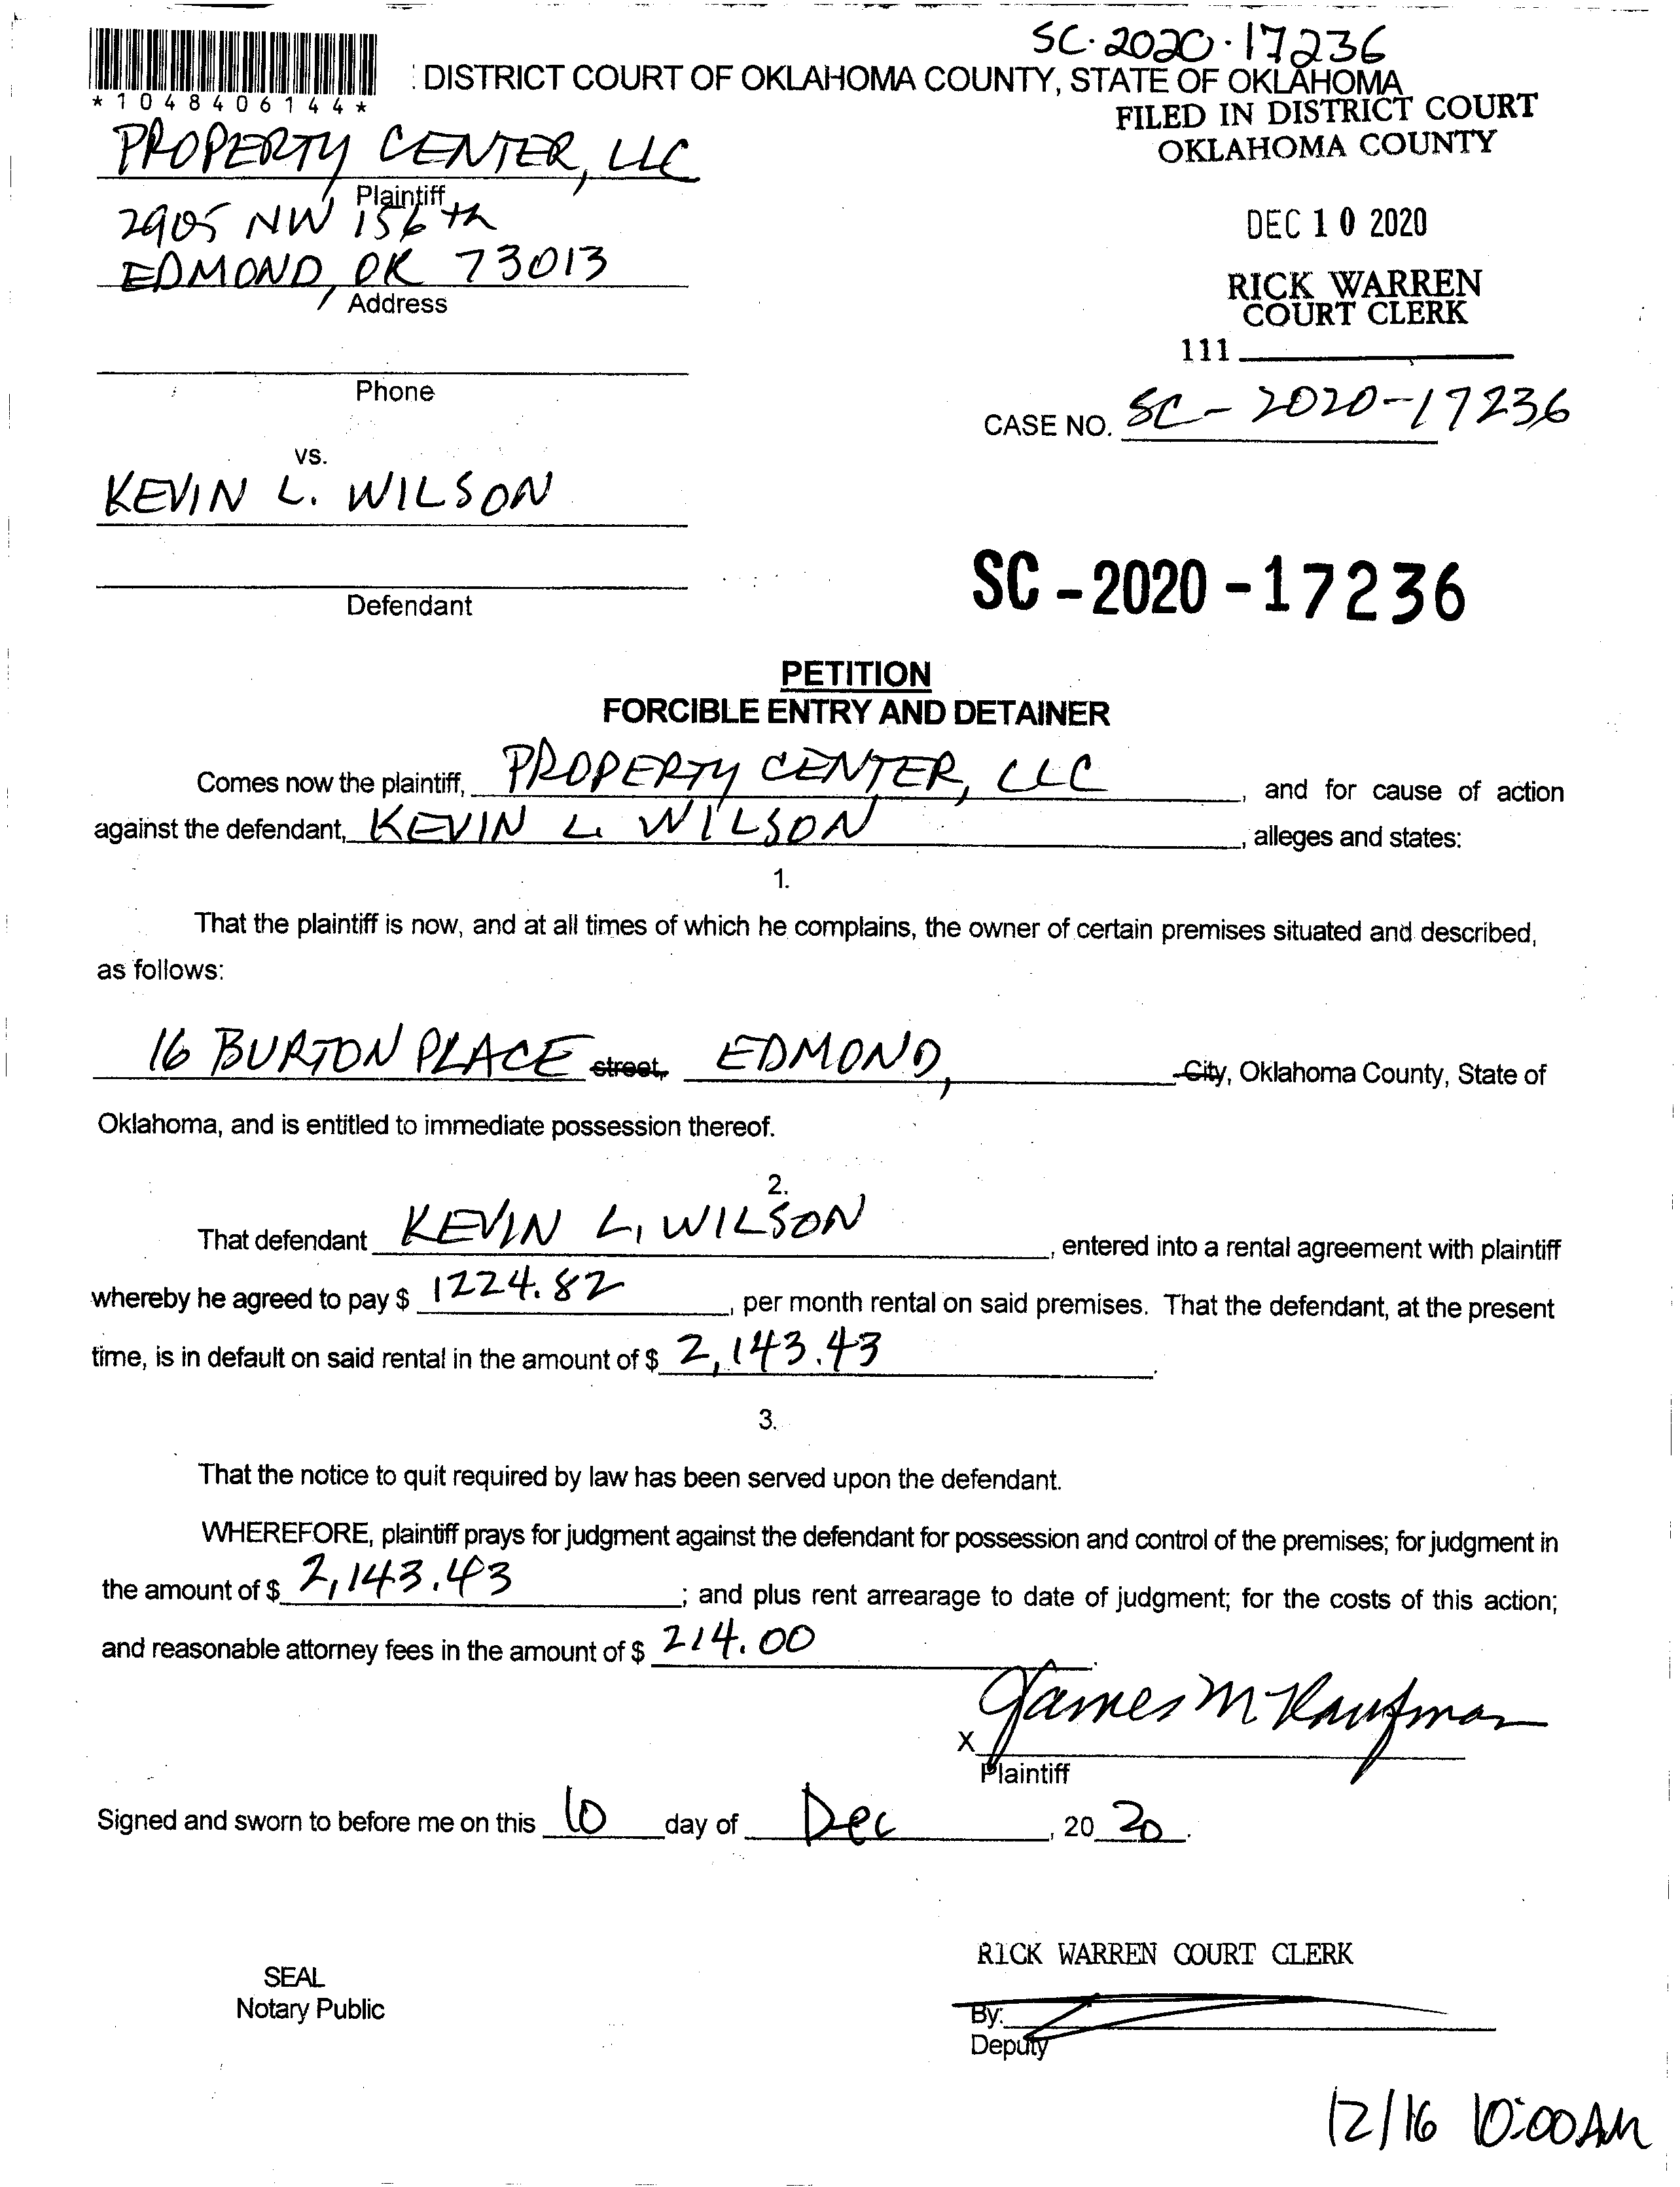 SC-2020-17236
: DISTRICT COURT OF OKLAHOMA COUNTY, STATE OF OKLAHOMA
*1048406144*
FILED IN DISTRICT COURT
OKLAHOMA COUNTY
PROPERTY CENTER, LLC
Plaintiff
2905 NW 156th
EDMOND, OK 73013
Address
DEC 10 2020
RICK WARREN
COURT CLERK
111
Phone
CASE NO. SC-2020-17236
vs.
KEVIN L. WILSON
Defendant
SC-2020-17236
PETITION
FORCIBLE ENTRY AND DETAINER
Comes now the plaintiff, PROPERTY CENTER, LLC, and for cause of action
against the defendant, KEVIN L. WILSON, alleges and states:
1.
That the plaintiff is now, and at all times of which he complains, the owner of certain premises situated and described,
as follows:
16 BURTON PLACE street, EDMOND, City, Oklahoma County, State of
Oklahoma, and is entitled to immediate possession thereof.
2.
That defendant KEVIN L. WILSON, entered into a rental agreement with plaintiff
whereby he agreed to pay $ 1224.82, per month rental on said premises. That the defendant, at the present
time, is in default on said rental in the amount of $ 2,143.43.
3.
That the notice to quit required by law has been served upon the defendant.
WHEREFORE, plaintiff prays for judgment against the defendant for possession and control of the premises; for judgment in
the amount of $ 2,143.43; and plus rent arrearage to date of judgment; for the costs of this action;
and reasonable attorney fees in the amount of $ 214.00.
James M Kaufman
X
Plaintiff
Signed and sworn to before me on this 10 day of Dec, 2020.
RICK WARREN COURT CLERK
SEAL
Notary Public
By:
Deputy
12/16 10:00AM